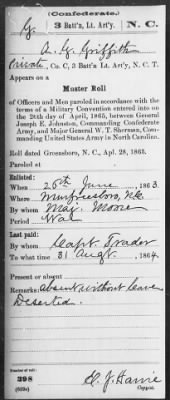 (Confederate.)
G. 3 Batt'n, Lt. Art'y. N. C.
A. G. Griffith
Private, Co. C, 3 Batt'n Lt. Art'y, N. C. T.
Appears on a
Muster Roll
of Officers and Men paroled in accordance with the
terms of a Military Convention entered into on
the 26th day of April, 1865, between General
Joseph E. Johnston, Commanding Confederate
Army, and Major General W. T. Sherman, Com-
manding United States Army in North Carolina.
Roll dated Greensboro, N. C., Apl. 28, 1865.
Paroled at
Enlisted:
When 26th June, 1863.
Where Murfreesboro, N.C.
By whom Maj. Moore
Period War
Last paid:
By whom Capt. Trador
To what time 31 Augt., 1864.
Present or absent
Remarks: absent without leave
Deserted.
Number of roll:
398
(662c) Copyist.